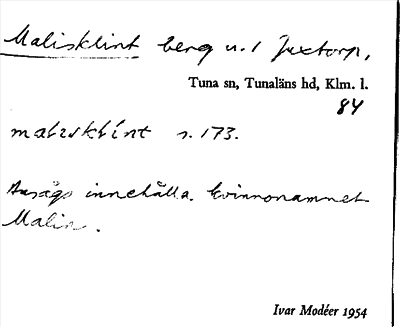 Malisklint berg n. / Juxtorp,
Tuna sn, Tunaläns hd, Klm. l.
84
malisklint s. 173.
Ansågs innehålla kvinnonamnet
Malin.
Ivar Modéer 1954